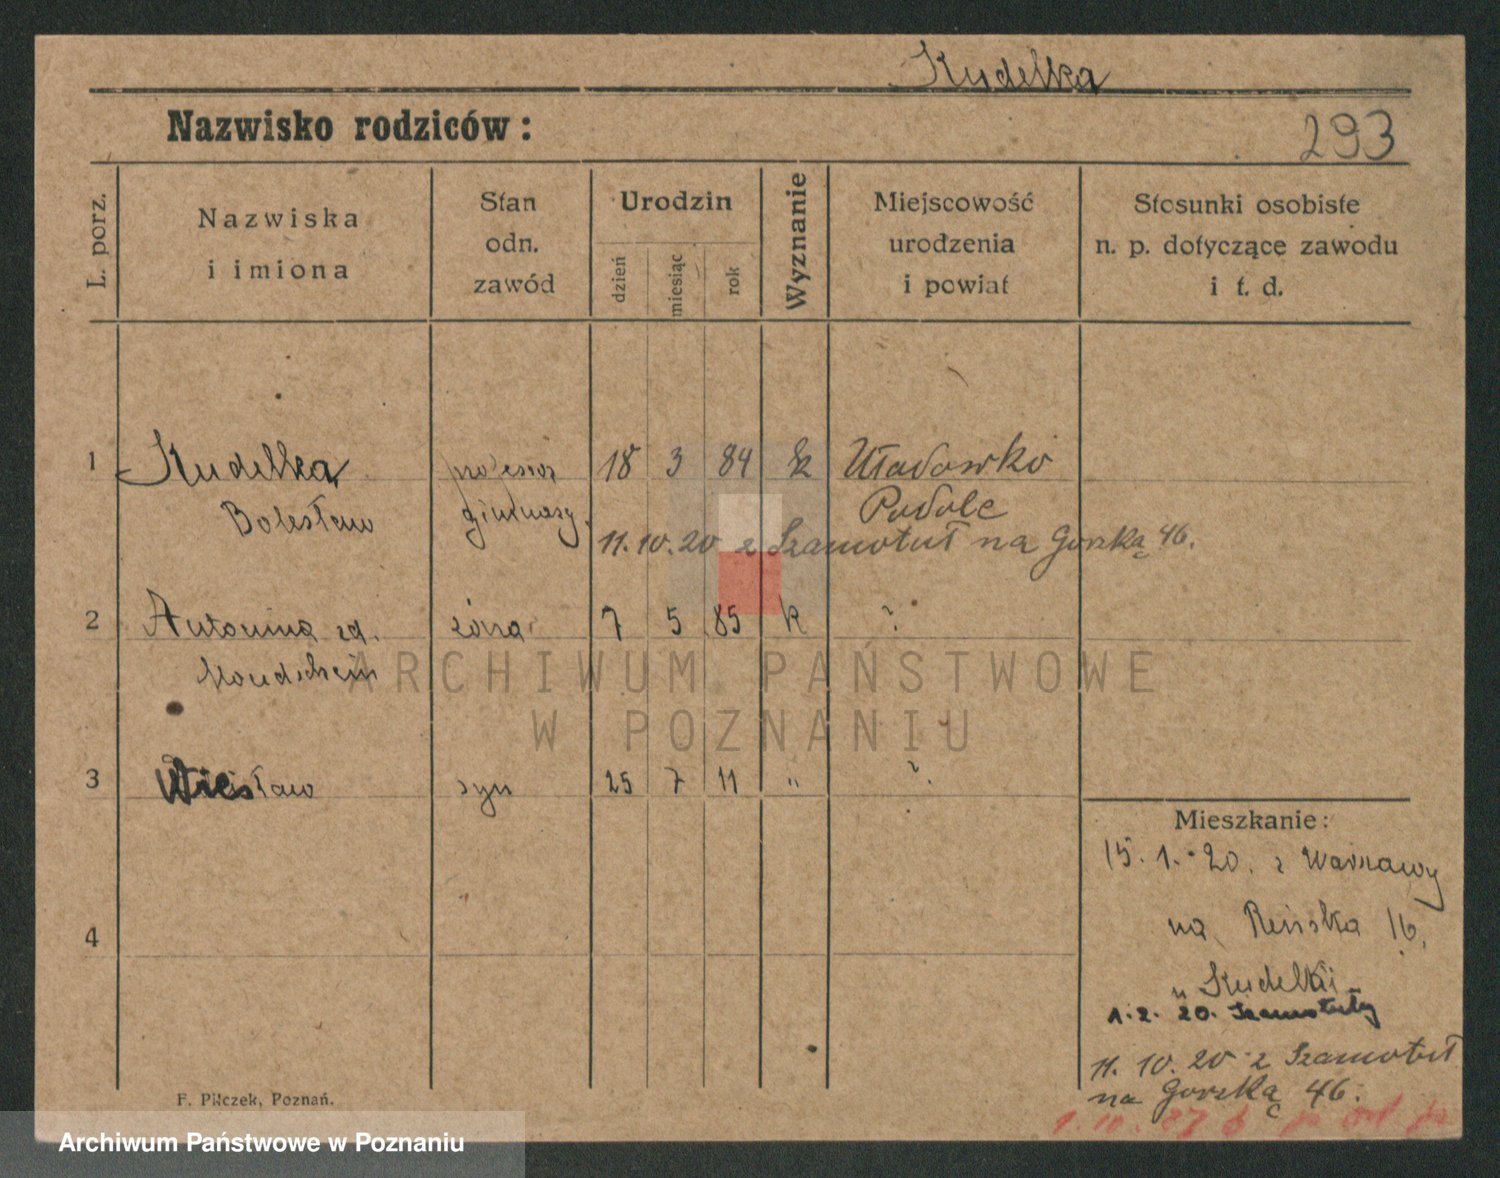 Kudelka
Nazwisko rodziców:
293
L. porz.
Nazwiska
i imiona
Stan
odn.
zawód
Urodzin
dzień
miesiąc
rok
Wyznanie
Miejscowość
urodzenia
i powiat
Stosunki osobiste
n. p. dotyczące zawodu
i t. d.
1 Kudelka profesor 18 3 84 Uładowko
Bolesław gimnazj. Podole
11.10.20 z Szamotuł na Gorską 46.
2 Antonina żona 7 5 85 k ?
3 Wiesław syn 25 7 11 " ?
4
Mieszkanie:
15.1.20. z Warszawy
na Reńska 16.
u Kudelki
1.2.20. Szamotuły
11.10.20 z Szamotuł
na Gorską 46.
F. Pilczek, Poznań.
ARCHIWUM PAŃSTWOWE
W POZNANIU
Archiwum Państwowe w Poznaniu